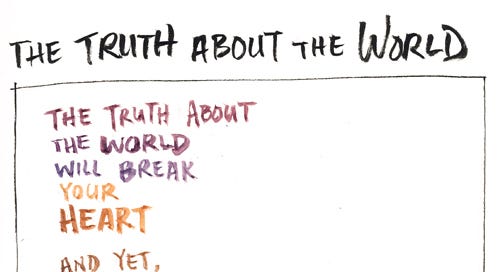 THE TRUTH ABOUT THE WORLD
THE TRUTH ABOUT
THE WORLD
WILL BREAK
YOUR
HEART
AND YET,